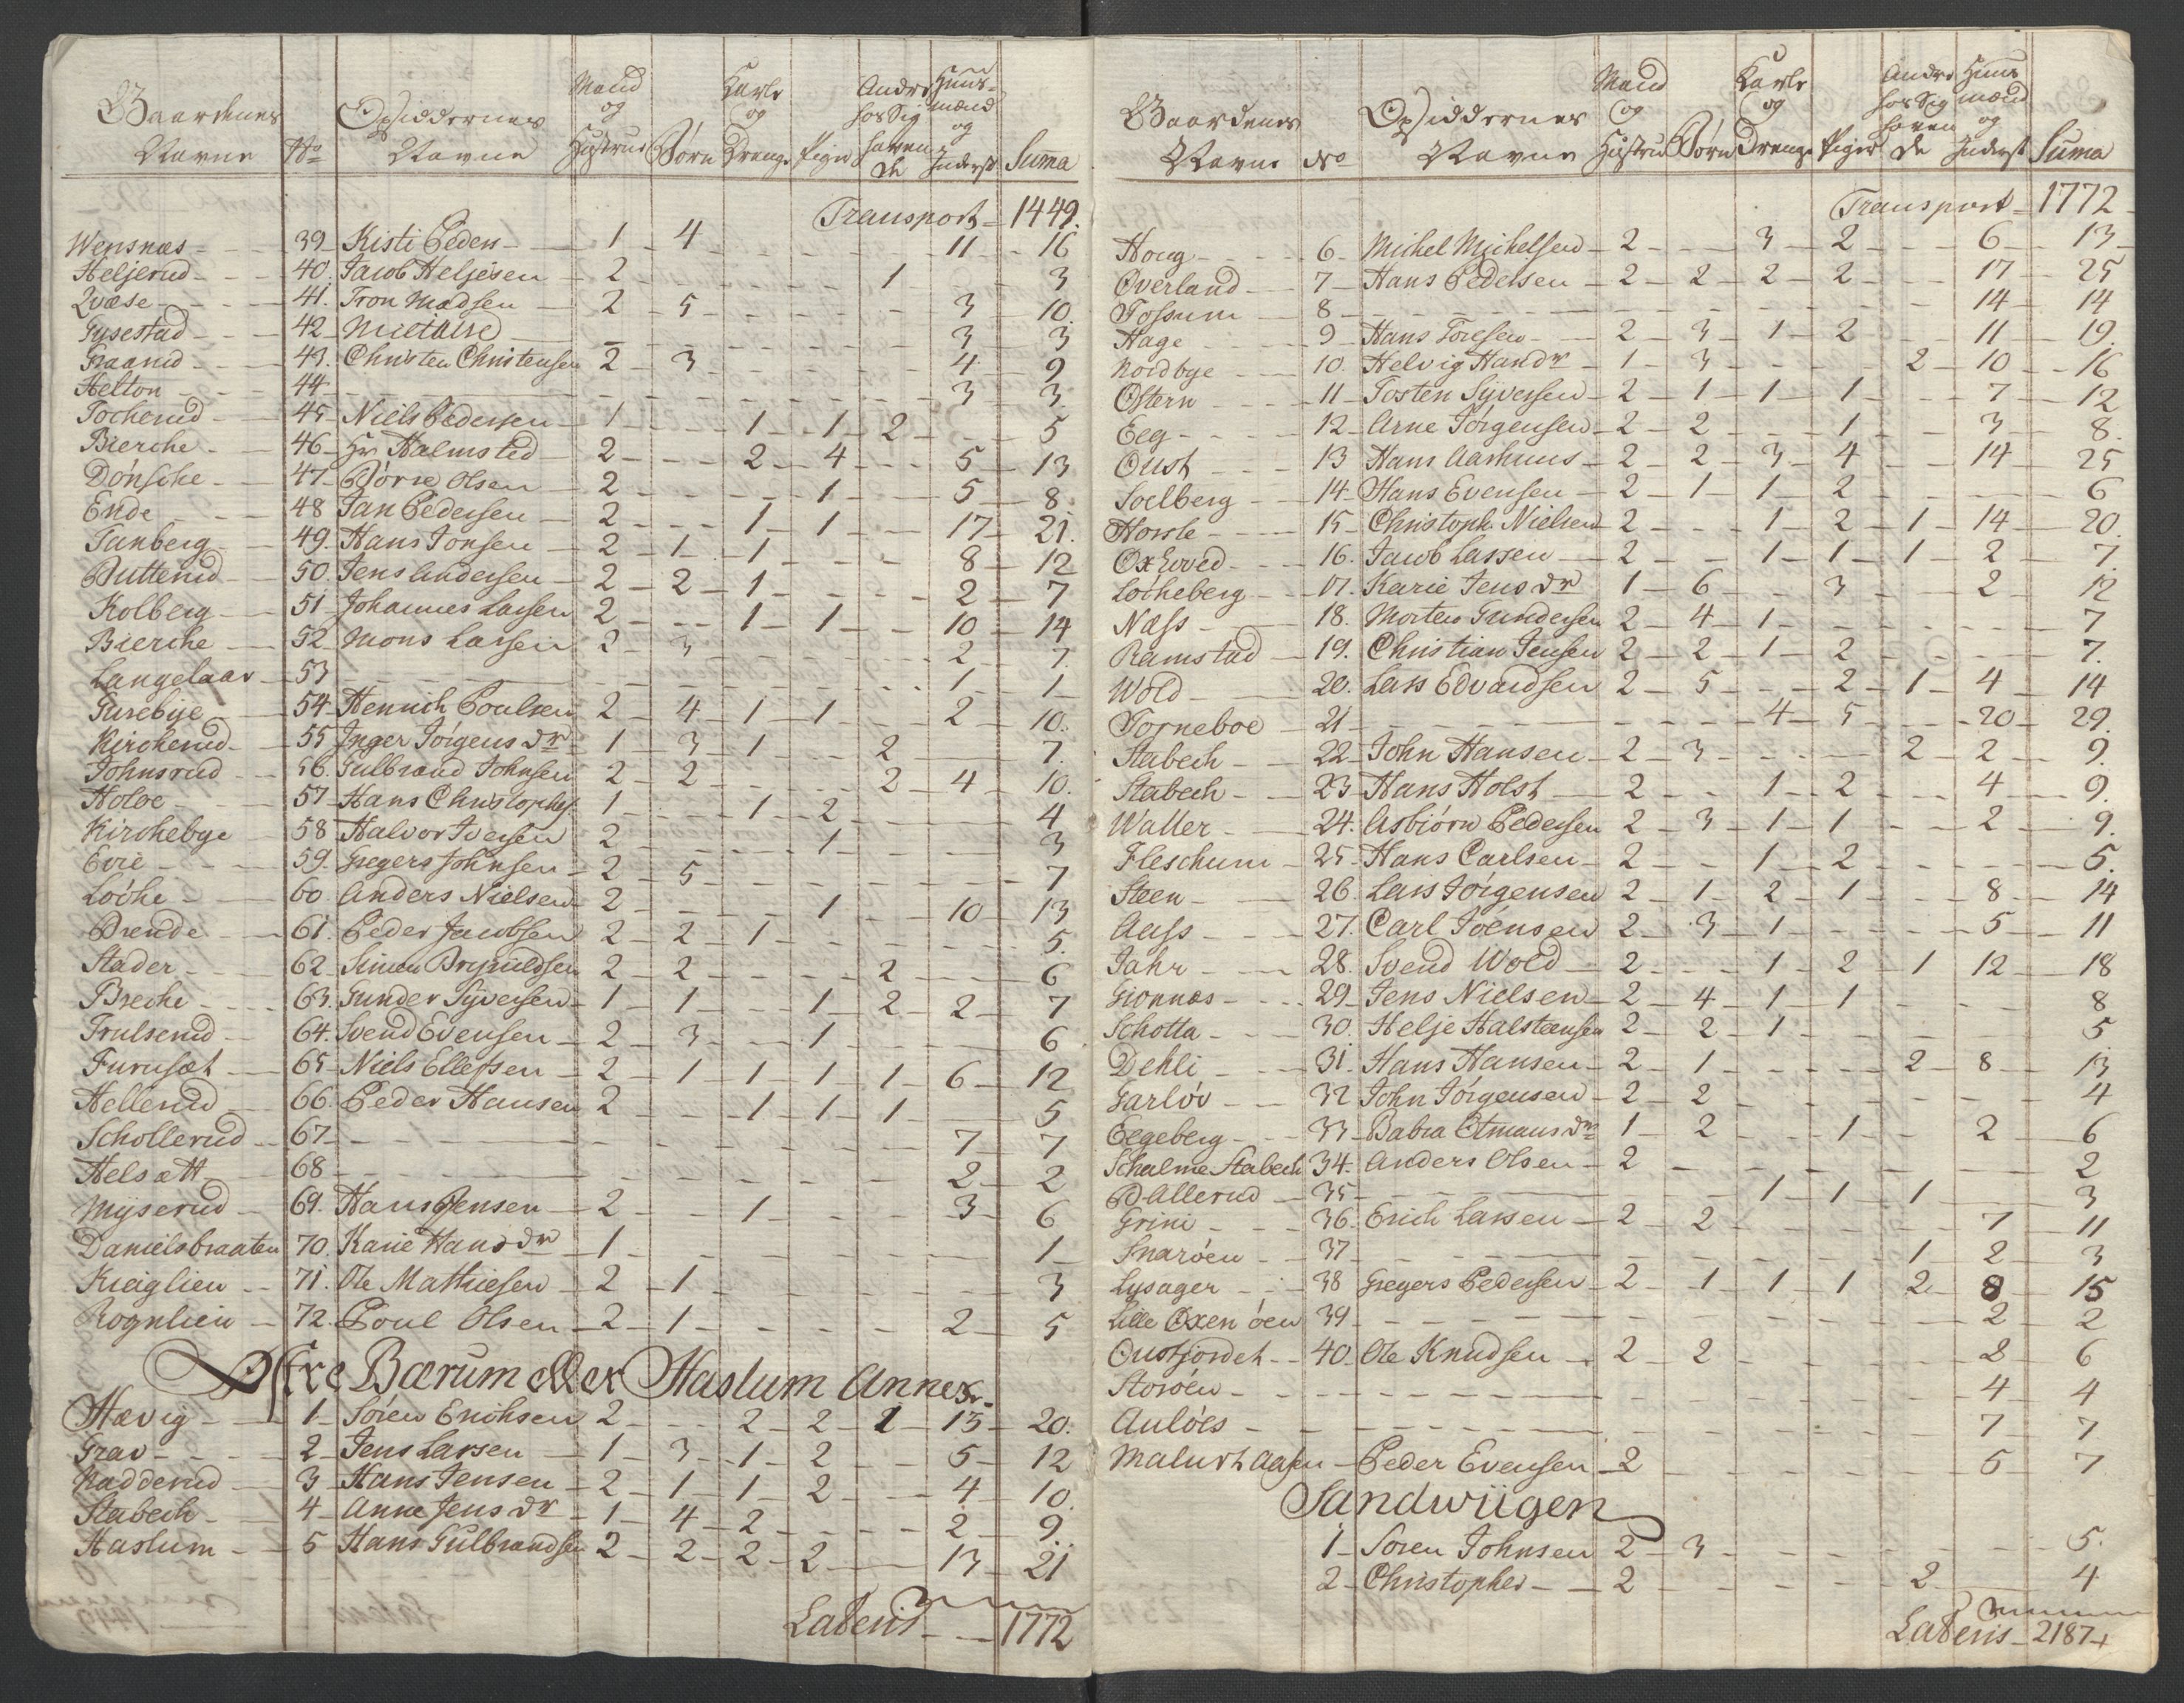 Gaardenes Navne No Opsiddernes Navne Mand og Hustrue Børn Karle og Drenge Piger Andre hos Sig havende Huusmænd og Inderste Suma
Transport 1449.
Wensnæs 39 Kisti Peders 1 4 11 16
Heljerud 40. Jacob Heljesen 2 1 3
Qvæse 41. Tron Madsen 2 5 3 10
Gysestad 42 3 3
Graand 43. Christen Christensen 2 3 4 9
Helton 44 3 3
Tocherud 45 Niels Pedersen 1 1 1 2 5
Bierche 46 Hr Halmsted 2 2 4 5 13
Dónsche 47 Børre Olsen 2 1 5 8
Ende 48 Jan Pedersen 2 1 1 17 21.
Tanberg 49. Hans Jonsen 2 1 1 8 12
Buttenid 50. Jens Andersen 2 2 1 2 7
Kolberg 51 Johannes Larsen 2 1 1 10 14
Bierche 52 Mons Larsen 2 3 2 7.
Langelaar 53 1 1
Gusebye 54 Henrich Poulsen 2 4 1 1 2 10.
Kircherud 55 Inger Jørgens dr 1 3 1 2 7.
Johnsrud 56. Gulbrand Johnsen 2 2 2 4 10.
Holoe 57 Hans Christophs. 1 1 2 4
Kirchebye 58 Halvor Iversen 2 1 3
Evie 59. Gregers Johnsen 2 5 7
Lóche 60 Anders Nielsen 2 1 10 13
Brende 61. Peder Jacobsen 2 2 1 5.
Stader 62 Simen Brynildsen 2 2 2 6
Breche 63. Gunder Syversen 1 1 1 2 2 7
Trulserud 64. Svend Evensen 2 3 1 6
Furuset 65 Niels Ellefsen 2 1 1 1 1 6 12
Hellerud 66. Peder Hansen 2 1 1 1 5
Schollerud 67 7 7
Helsætt 68 2 2
Myserud 69. Hans Jensen 2 1 3 6
Danielsbraaten 70. Karie Hans dr 1 1
Kraglien 71. Ole Mathiesen 2 1 3
Rognlien 72. Poul Olsen 2 1 2 5
Østre Bærum eller Haslum Annex.
Hævig 1 Sören Erichsen 2 2 2 1 13 20.
Grav 2 Jens Larsen 1 3 1 2 5 12
Nadderud 3 Hans Jensen 2 1 1 2 4 10.
Stabech 4 Anne Jens dr 1 4 2 2 9.
Haslum 5 Hans Gulbrandsen 2 2 2 2 13 21
Lateris 1772
Gaardenes Navne No Opsiddernes Navne Mand og Hustrue Børn Karle og Drenge Piger Andre hos Sig havende Huusmænd og Inderst Suma
Transport 1772
Houg 6 Michel Michelsen 2 3 2 6 13
Overland 7 Hans Pedersen 2 2 2 2 17 25
Fossum 8 14 14
Hage 9 Hans Toresen 2 3 1 2 11 19.
Nordbye 10. Helvig Hans dr 1 3 2 10 16
Østern 11 Tosten Syversen 2 1 1 1 7 12
Eeg 12 Arne Jörgensen 2 2 1 3 8.
Oust 13 Hans Aarhuus 2 2 3 4 14 25
Soelberg 14 Hans Evensen 2 1 1 2 6
Horsle 15 Christoph. Nielsen 2 1 2 1 14 20.
Oxhoved 16. Jacob Lassen 2 1 1 1 2 7.
Lócheberg 17. Karie Jens dr 1 6 3 2 12
Næss 18. Morten Gundersen 2 4 1 7
Ramstad 19. Christian Jensen 2 2 1 2 7.
Wold 20. Lars Edvardsen 2 5 2 1 4 14
Torneboe 21 4 5 20 29.
Stabech 22 John Hansen 2 3 2 2 9.
Stabech 23 Hans Holst 2 1 2 4 9.
Waller 24. Asbiörn Pedersen 2 3 1 1 2 9.
Fleschum 25 Hans Carlsen 2 1 2 5.
Steen 26. Lars Jörgensen 2 1 2 1 8 14
Aass 27. Carl Joensen 2 3 1 5 11
Jahr 28. Svend Wold 2 1 2 1 12 18
Gionnæs 29 Jens Nielsen 2 4 1 1 8
Schotta 30. Helje Halstensen 2 2 1 5
Dehli 31. Hans Hansen 2 1 2 8 13
Garløv 32 John Jörgensen 2 2 4
Eegeberg 33 Babra Etmans dr 1 2 1 2 6
Schalme Stabech 34. Anders Olsen 2 2
Ballerud 35 1 1 1 3
Grini 36. Erich Larsen 2 2 7 11
Snaróen 37 1 2 3
Lysager 38 Gregers Pedersen 2 1 1 1 2 8 15
Lille Oxenöen 39 2 2
Oustfjordet 40. Ole Knudsen 2 2 2 6
Storöen 4 4
Aulóes 7 7
Peder Evensen 2 5 7
Sandwiigen
1 Soren Johnsen 2 3 5.
2 Christopher 2 2 4
Lateris 2187